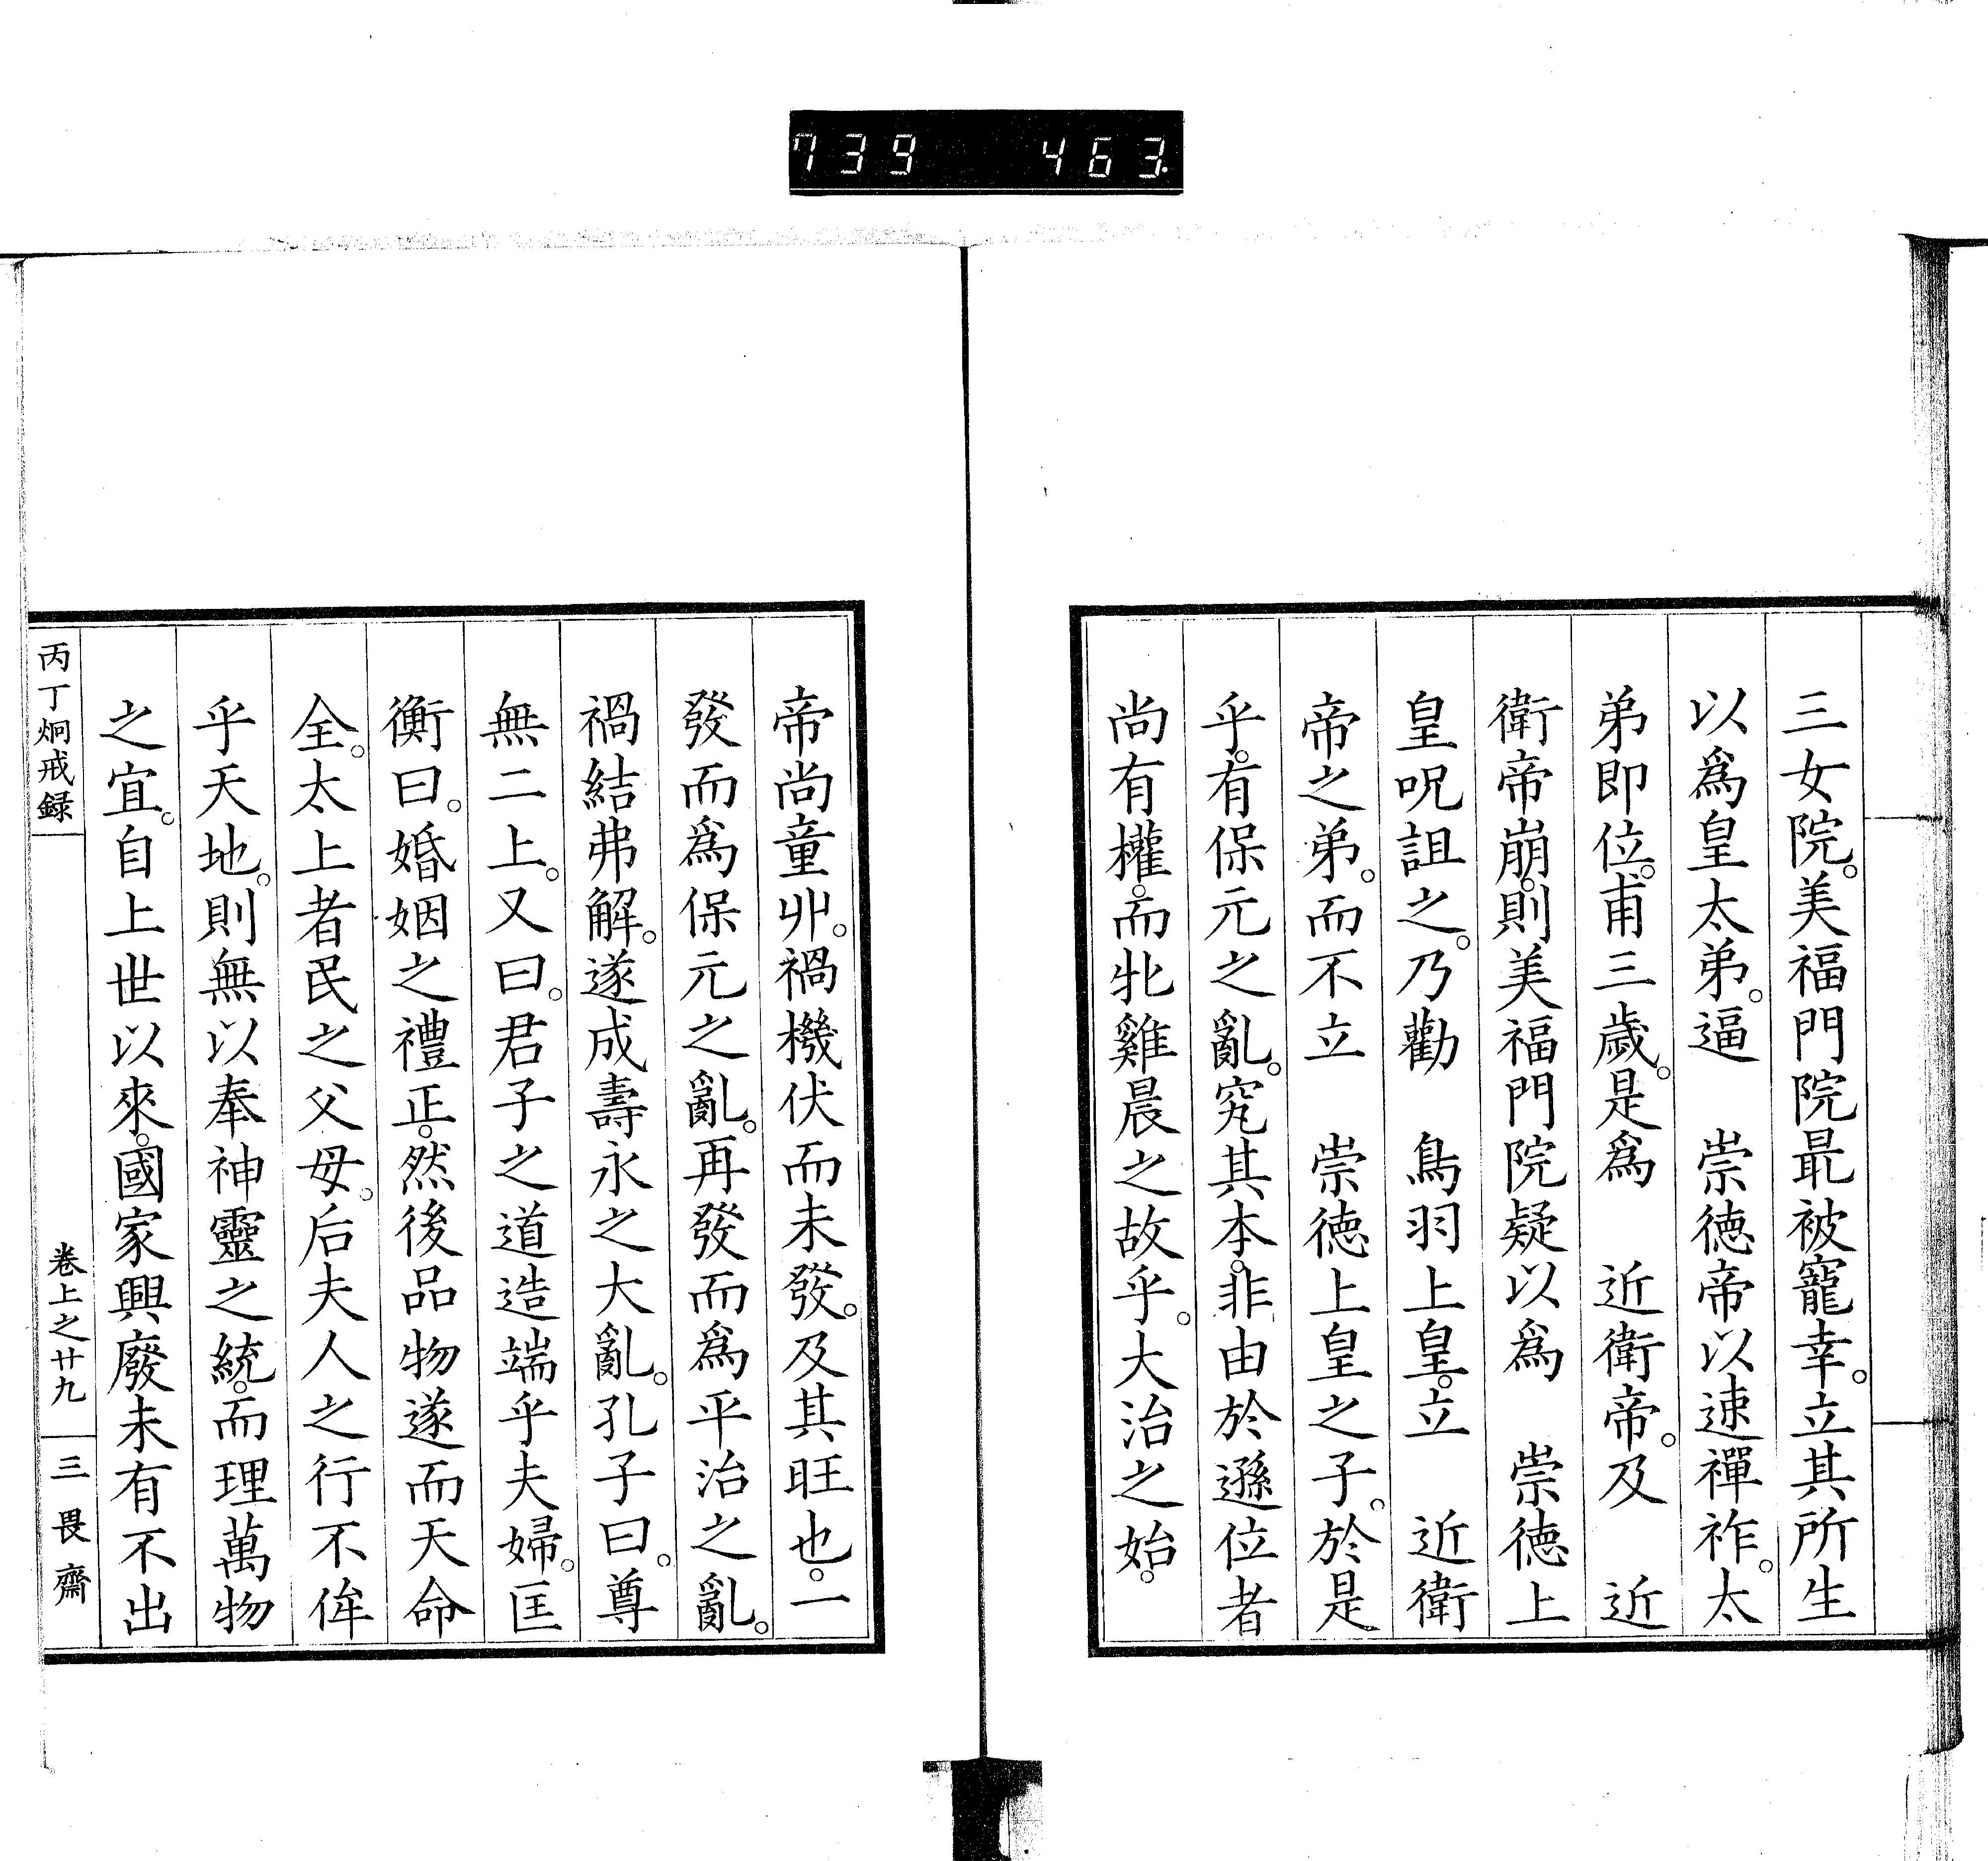 739 463
三女院。美福門院最被寵幸。立其所生
以爲皇太弟。逼　崇徳帝以速禪祚。太
弟即位。甫三歲。是爲　近衛帝。及　近
衛帝崩。則美福門院疑以爲　崇徳上
皇呪詛之。乃勸　鳥羽上皇。立　近衛
帝之弟。而不立　崇徳上皇之子。於是
乎。有保元之亂。究其本。非由於遜位者
尚有權。而牝雞晨之故乎。大治之始。
帝尚童丱。禍機伏而未發。及其旺也。一
發而爲保元之亂。再發而爲平治之亂。
禍結弗解。遂成壽永之大亂。孔子曰。尊
無二上。又曰。君子之道造端乎夫婦。匡
衡曰。婚姻之禮正。然後品物遂而天命
全。太上者民之父母。后夫人之行不侔
乎天地。則無以奉神靈之統。而理萬物
之宜。自上世以來。國家興廢未有不出
丙丁炯戒録
卷上之廿九
三畏齋